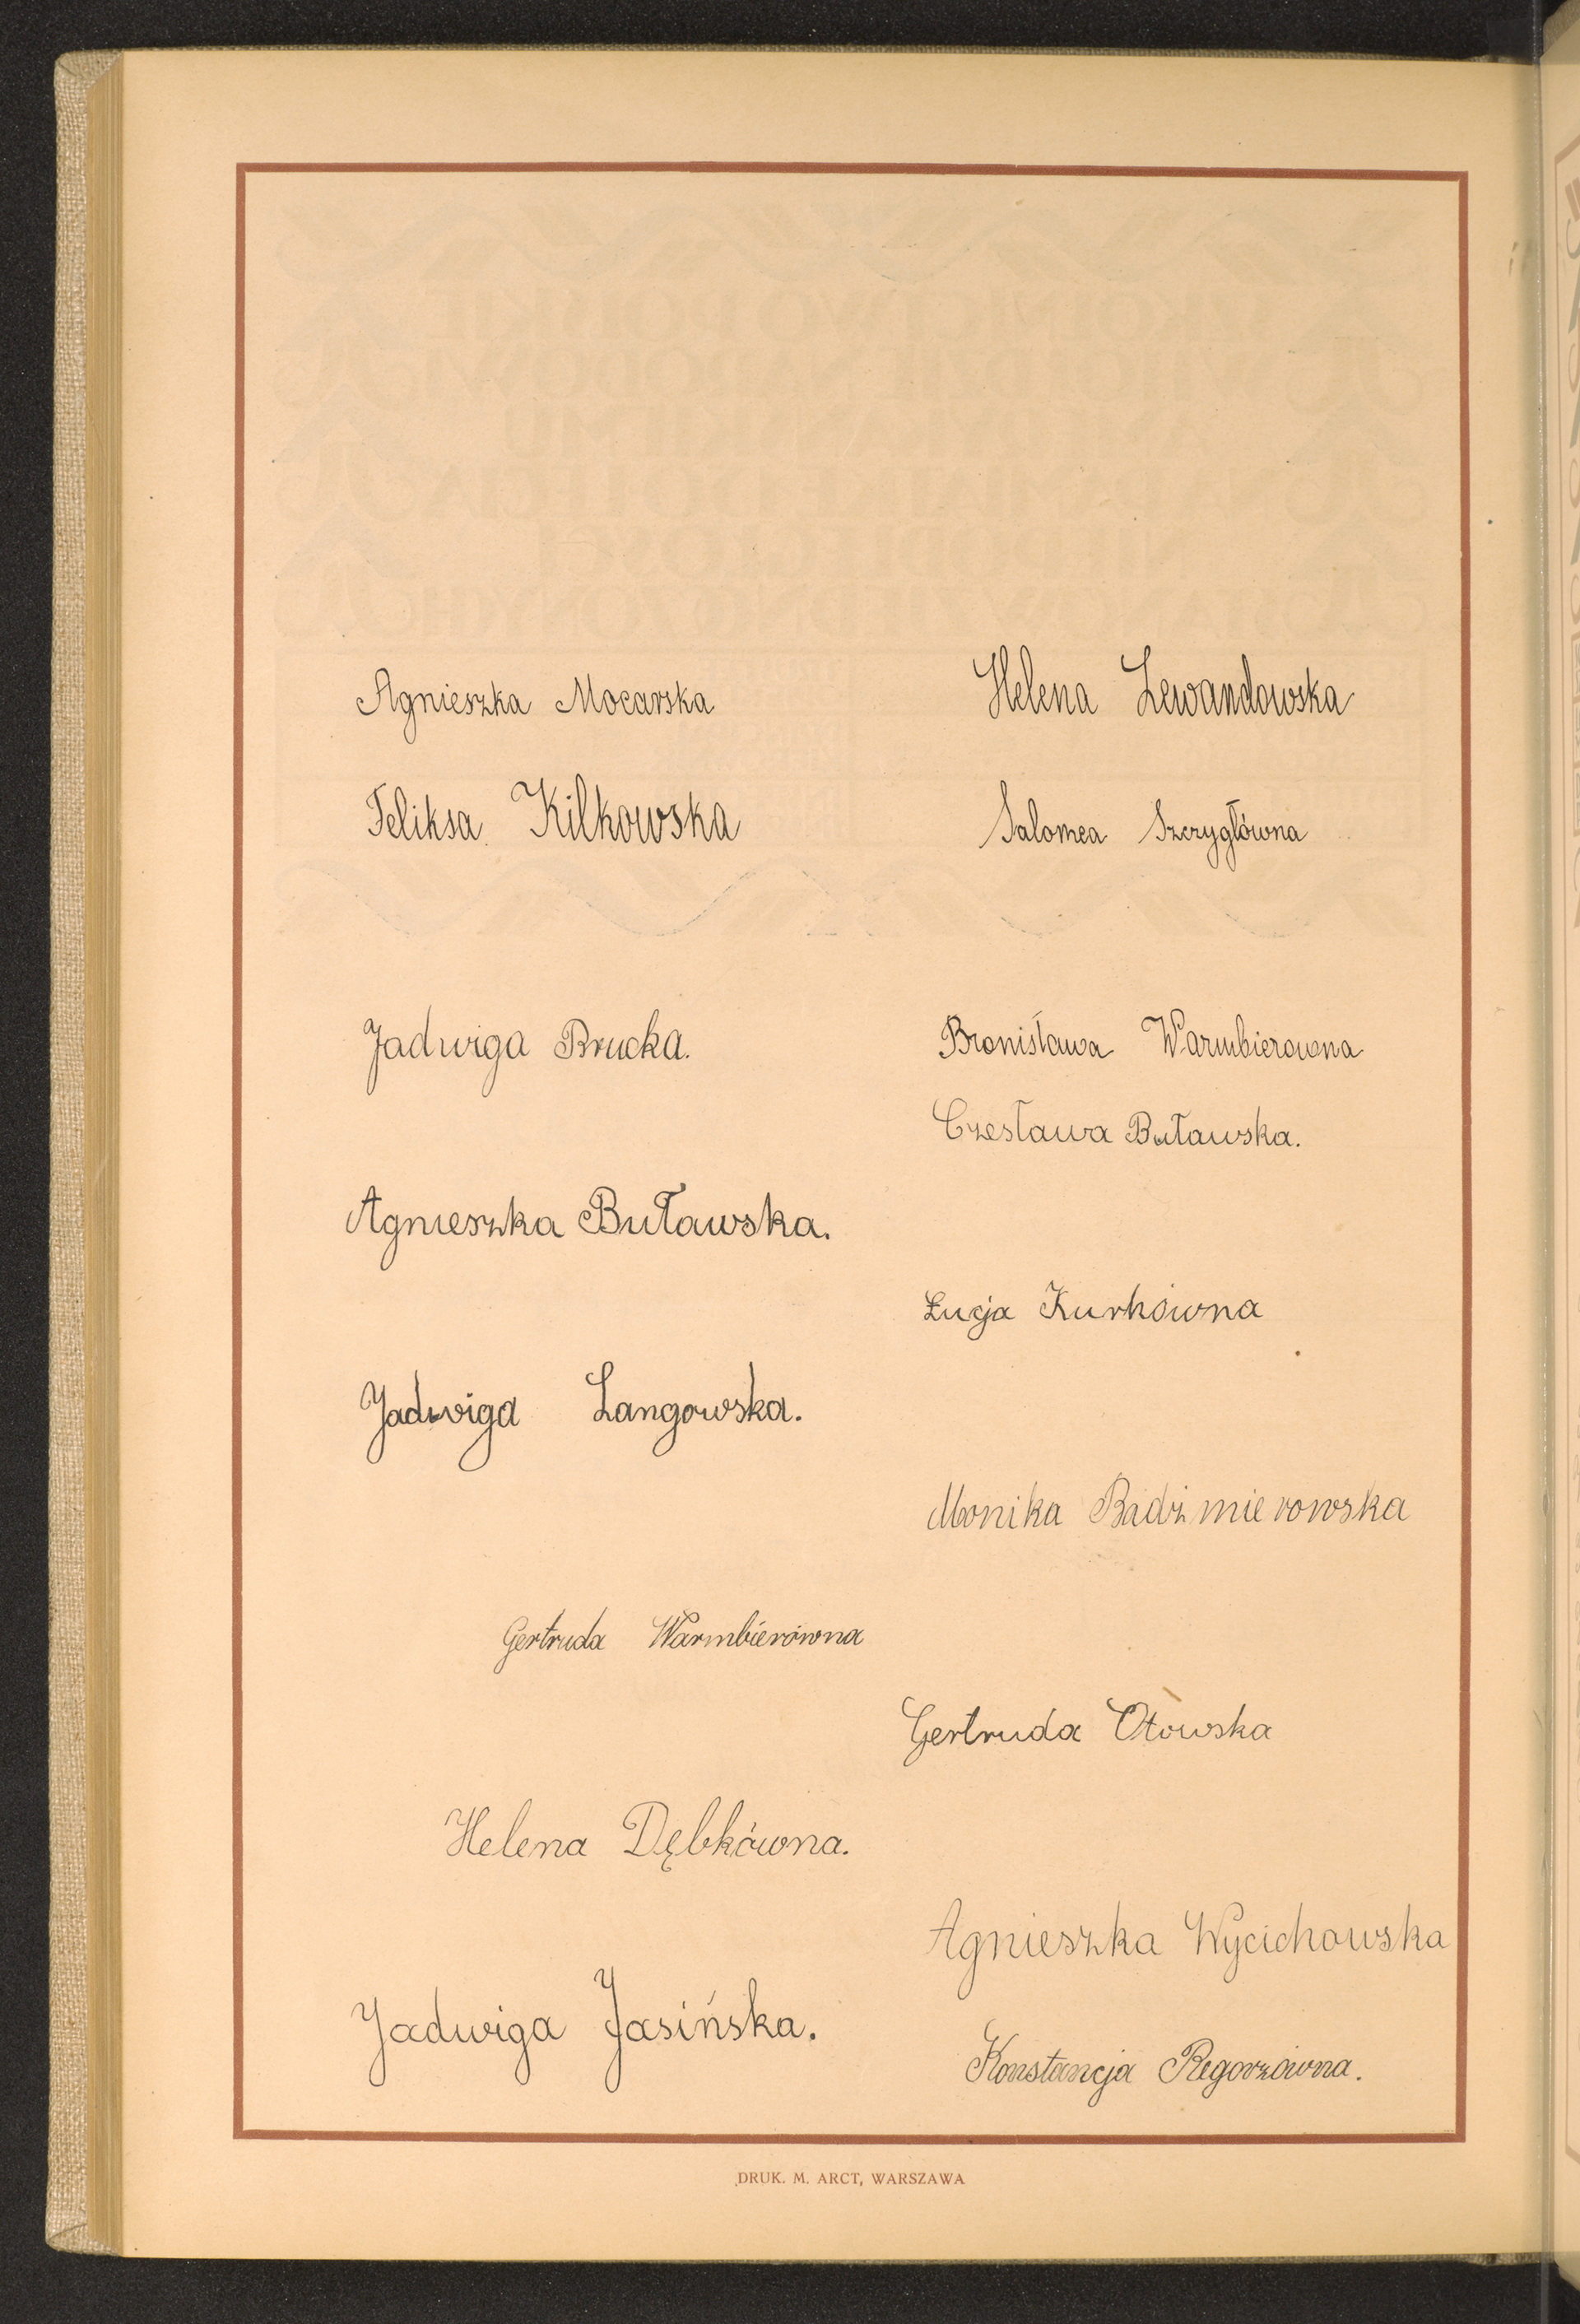 Agnieszka Mocarska
Feliksa Kilkowska
Jadwiga Brucka.
Agnieszka Buławska.
Jadwiga Langowska.
Gertruda Warmbierówna
Helena Dębkówna.
Jadwiga Jasińska.
Helena Lewandowska
Salomea Szczygłówna
Bronisława Warmbierowna
Czesława Buławska.
Łucja Kurkówna
Monika Badźmierowska
Gertruda Otowska
Agnieszka Wycichowska
Konstancja Regorzówna.
DRUK. M. ARCT, WARSZAWA